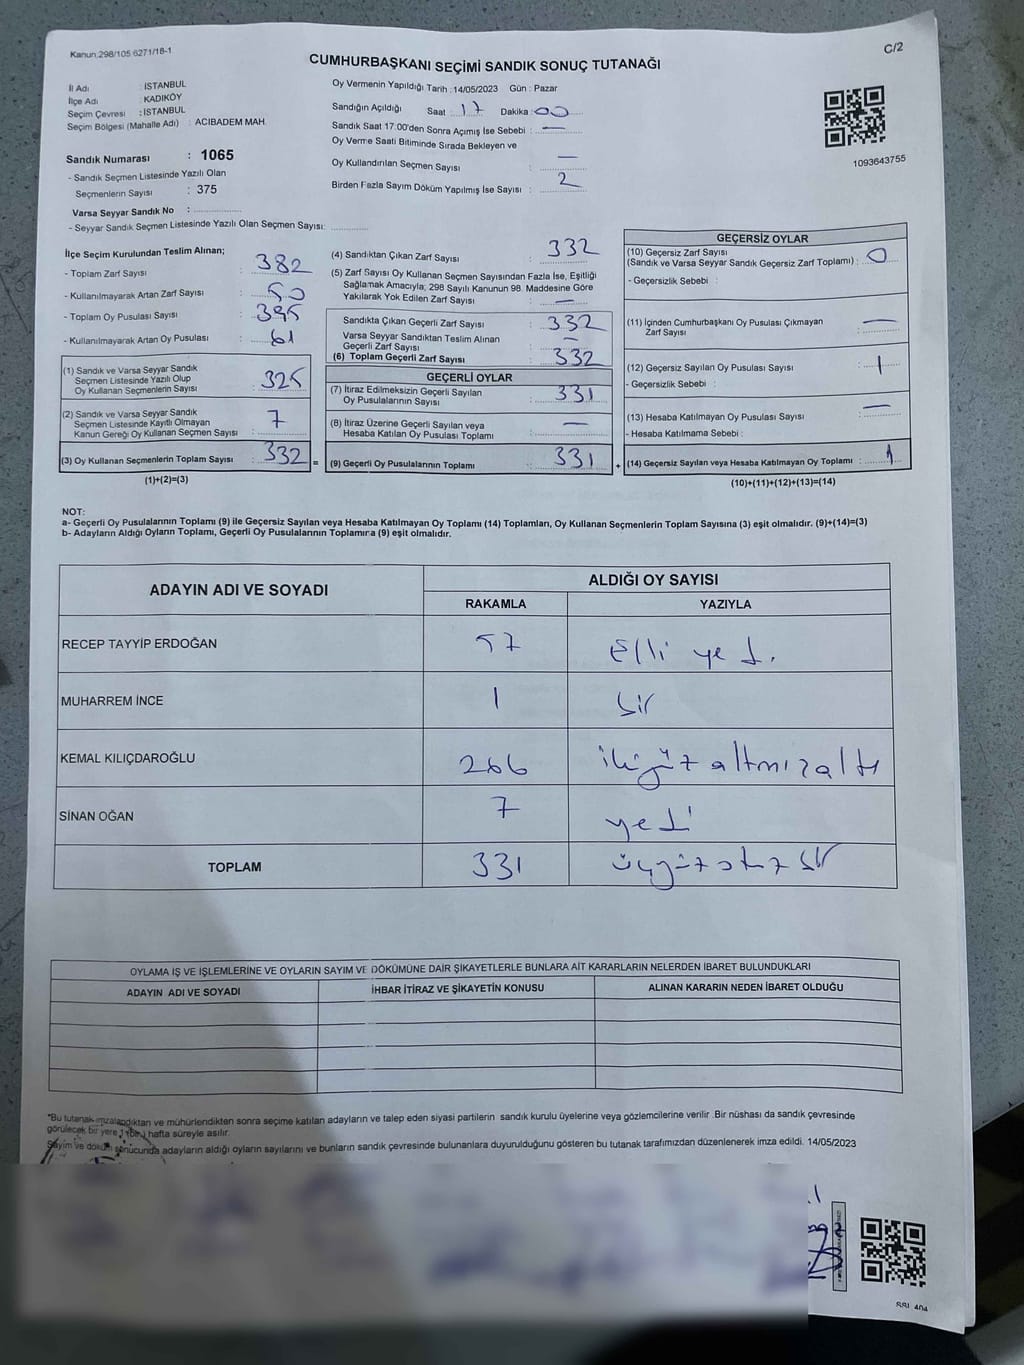 Kanun 298/105 6271/18-1
C/2
CUMHURBAŞKANI SEÇİMİ SANDIK SONUÇ TUTANAĞI
İl Adı : İSTANBUL
İlçe Adı : KADIKÖY
Seçim Çevresi : İSTANBUL
Seçim Bölgesi (Mahalle Adı) : ACIBADEM MAH.
Sandık Numarası : 1065
- Sandık Seçmen Listesinde Yazılı Olan
Seçmenlerin Sayısı : 375
Varsa Seyyar Sandık No :
- Seyyar Sandık Seçmen Listesinde Yazılı Olan Seçmen Sayısı:
Oy Vermenin Yapıldığı Tarih : 14/05/2023 Gün : Pazar
Sandığın Açıldığı Saat : 17 Dakika : 00
Sandık Saat 17:00'den Sonra Açımış İse Sebebi : —
Oy Verme Saati Bitiminde Sırada Bekleyen ve
Oy Kullandırılan Seçmen Sayısı : —
Birden Fazla Sayım Döküm Yapılmış İse Sayısı : 2
1093643755
İlçe Seçim Kurulundan Teslim Alınan;
- Toplam Zarf Sayısı : 382
- Kullanılmayarak Artan Zarf Sayısı : 50
- Toplam Oy Pusulası Sayısı :
- Kullanılmayarak Artan Oy Pusulası : 61
(1) Sandık ve Varsa Seyyar Sandık
Seçmen Listesinde Yazılı Olup
Oy Kullanan Seçmenlerin Sayısı : 325
(2) Sandık ve Varsa Seyyar Sandık
Seçmen Listesinde Kayıtlı Olmayan
Kanun Gereği Oy Kullanan Seçmen Sayısı : 7
(3) Oy Kullanan Seçmenlerin Toplam Sayısı : 332 =
(1)+(2)=(3)
(4) Sandıktan Çıkan Zarf Sayısı : 332
(5) Zarf Sayısı Oy Kullanan Seçmen Sayısından Fazla İse, Eşitliği
Sağlamak Amacıyla; 298 Sayılı Kanunun 98. Maddesine Göre
Yakılarak Yok Edilen Zarf Sayısı : —
Sandıkta Çıkan Geçerli Zarf Sayısı : 332
Varsa Seyyar Sandıktan Teslim Alınan
Geçerli Zarf Sayısı : —
(6) Toplam Geçerli Zarf Sayısı : 332
GEÇERLİ OYLAR
(7) İtiraz Edilmeksizin Geçerli Sayılan
Oy Pusulalarının Sayısı : 331
(8) İtiraz Üzerine Geçerli Sayılan veya
Hesaba Katılan Oy Pusulası Toplamı : —
(9) Geçerli Oy Pusulalarının Toplamı : 331 +
GEÇERSİZ OYLAR
(10) Geçersiz Zarf Sayısı
(Sandık ve Varsa Seyyar Sandık Geçersiz Zarf Toplamı) : 0
- Geçersizlik Sebebi :
(11) İçinden Cumhurbaşkanı Oy Pusulası Çıkmayan
Zarf Sayısı : —
(12) Geçersiz Sayılan Oy Pusulası Sayısı : 1
- Geçersizlik Sebebi :
(13) Hesaba Katılmayan Oy Pusulası Sayısı : —
- Hesaba Katılmama Sebebi :
(14) Geçersiz Sayılan veya Hesaba Katılmayan Oy Toplamı : 1
(10)+(11)+(12)+(13)=(14)
NOT:
a- Geçerli Oy Pusulalarının Toplamı (9) ile Geçersiz Sayılan veya Hesaba Katılmayan Oy Toplamı (14) Toplamları, Oy Kullanan Seçmenlerin Toplam Sayısına (3) eşit olmalıdır. (9)+(14)=(3)
b- Adayların Aldığı Oyların Toplamı, Geçerli Oy Pusulalarının Toplamına (9) eşit olmalıdır.
ADAYIN ADI VE SOYADI ALDIĞI OY SAYISI
RAKAMLA YAZIYLA
RECEP TAYYİP ERDOĞAN 57 Elli yedi
MUHARREM İNCE 1 bir
KEMAL KILIÇDAROĞLU 266 ikiyüz altmışaltı
SİNAN OĞAN 7 yedi
TOPLAM 331 üçyüz otuz bir
OYLAMA İŞ VE İŞLEMLERİNE VE OYLARIN SAYIM VE DÖKÜMÜNE DAİR ŞİKAYETLERLE BUNLARA AİT KARARLARIN NELERDEN İBARET BULUNDUKLARI
ADAYIN ADI VE SOYADI İHBAR İTİRAZ VE ŞİKAYETİN KONUSU ALINAN KARARIN NEDEN İBARET OLDUĞU
*Bu tutanak imzalandıktan ve mühürlendikten sonra seçime katılan adayların ve talep eden siyasi partilerin sandık kurulu üyelerine veya gözlemcilerine verilir. Bir nüshası da sandık çevresinde
görülecek bir yere 1 (bir) hafta süreyle asılır.
Sayım ve döküm sonucunda adayların aldığı oyların sayılarını ve bunların sandık çevresinde bulunanlara duyurulduğunu gösteren bu tutanak tarafımızdan düzenlenerek imza edildi. 14/05/2023